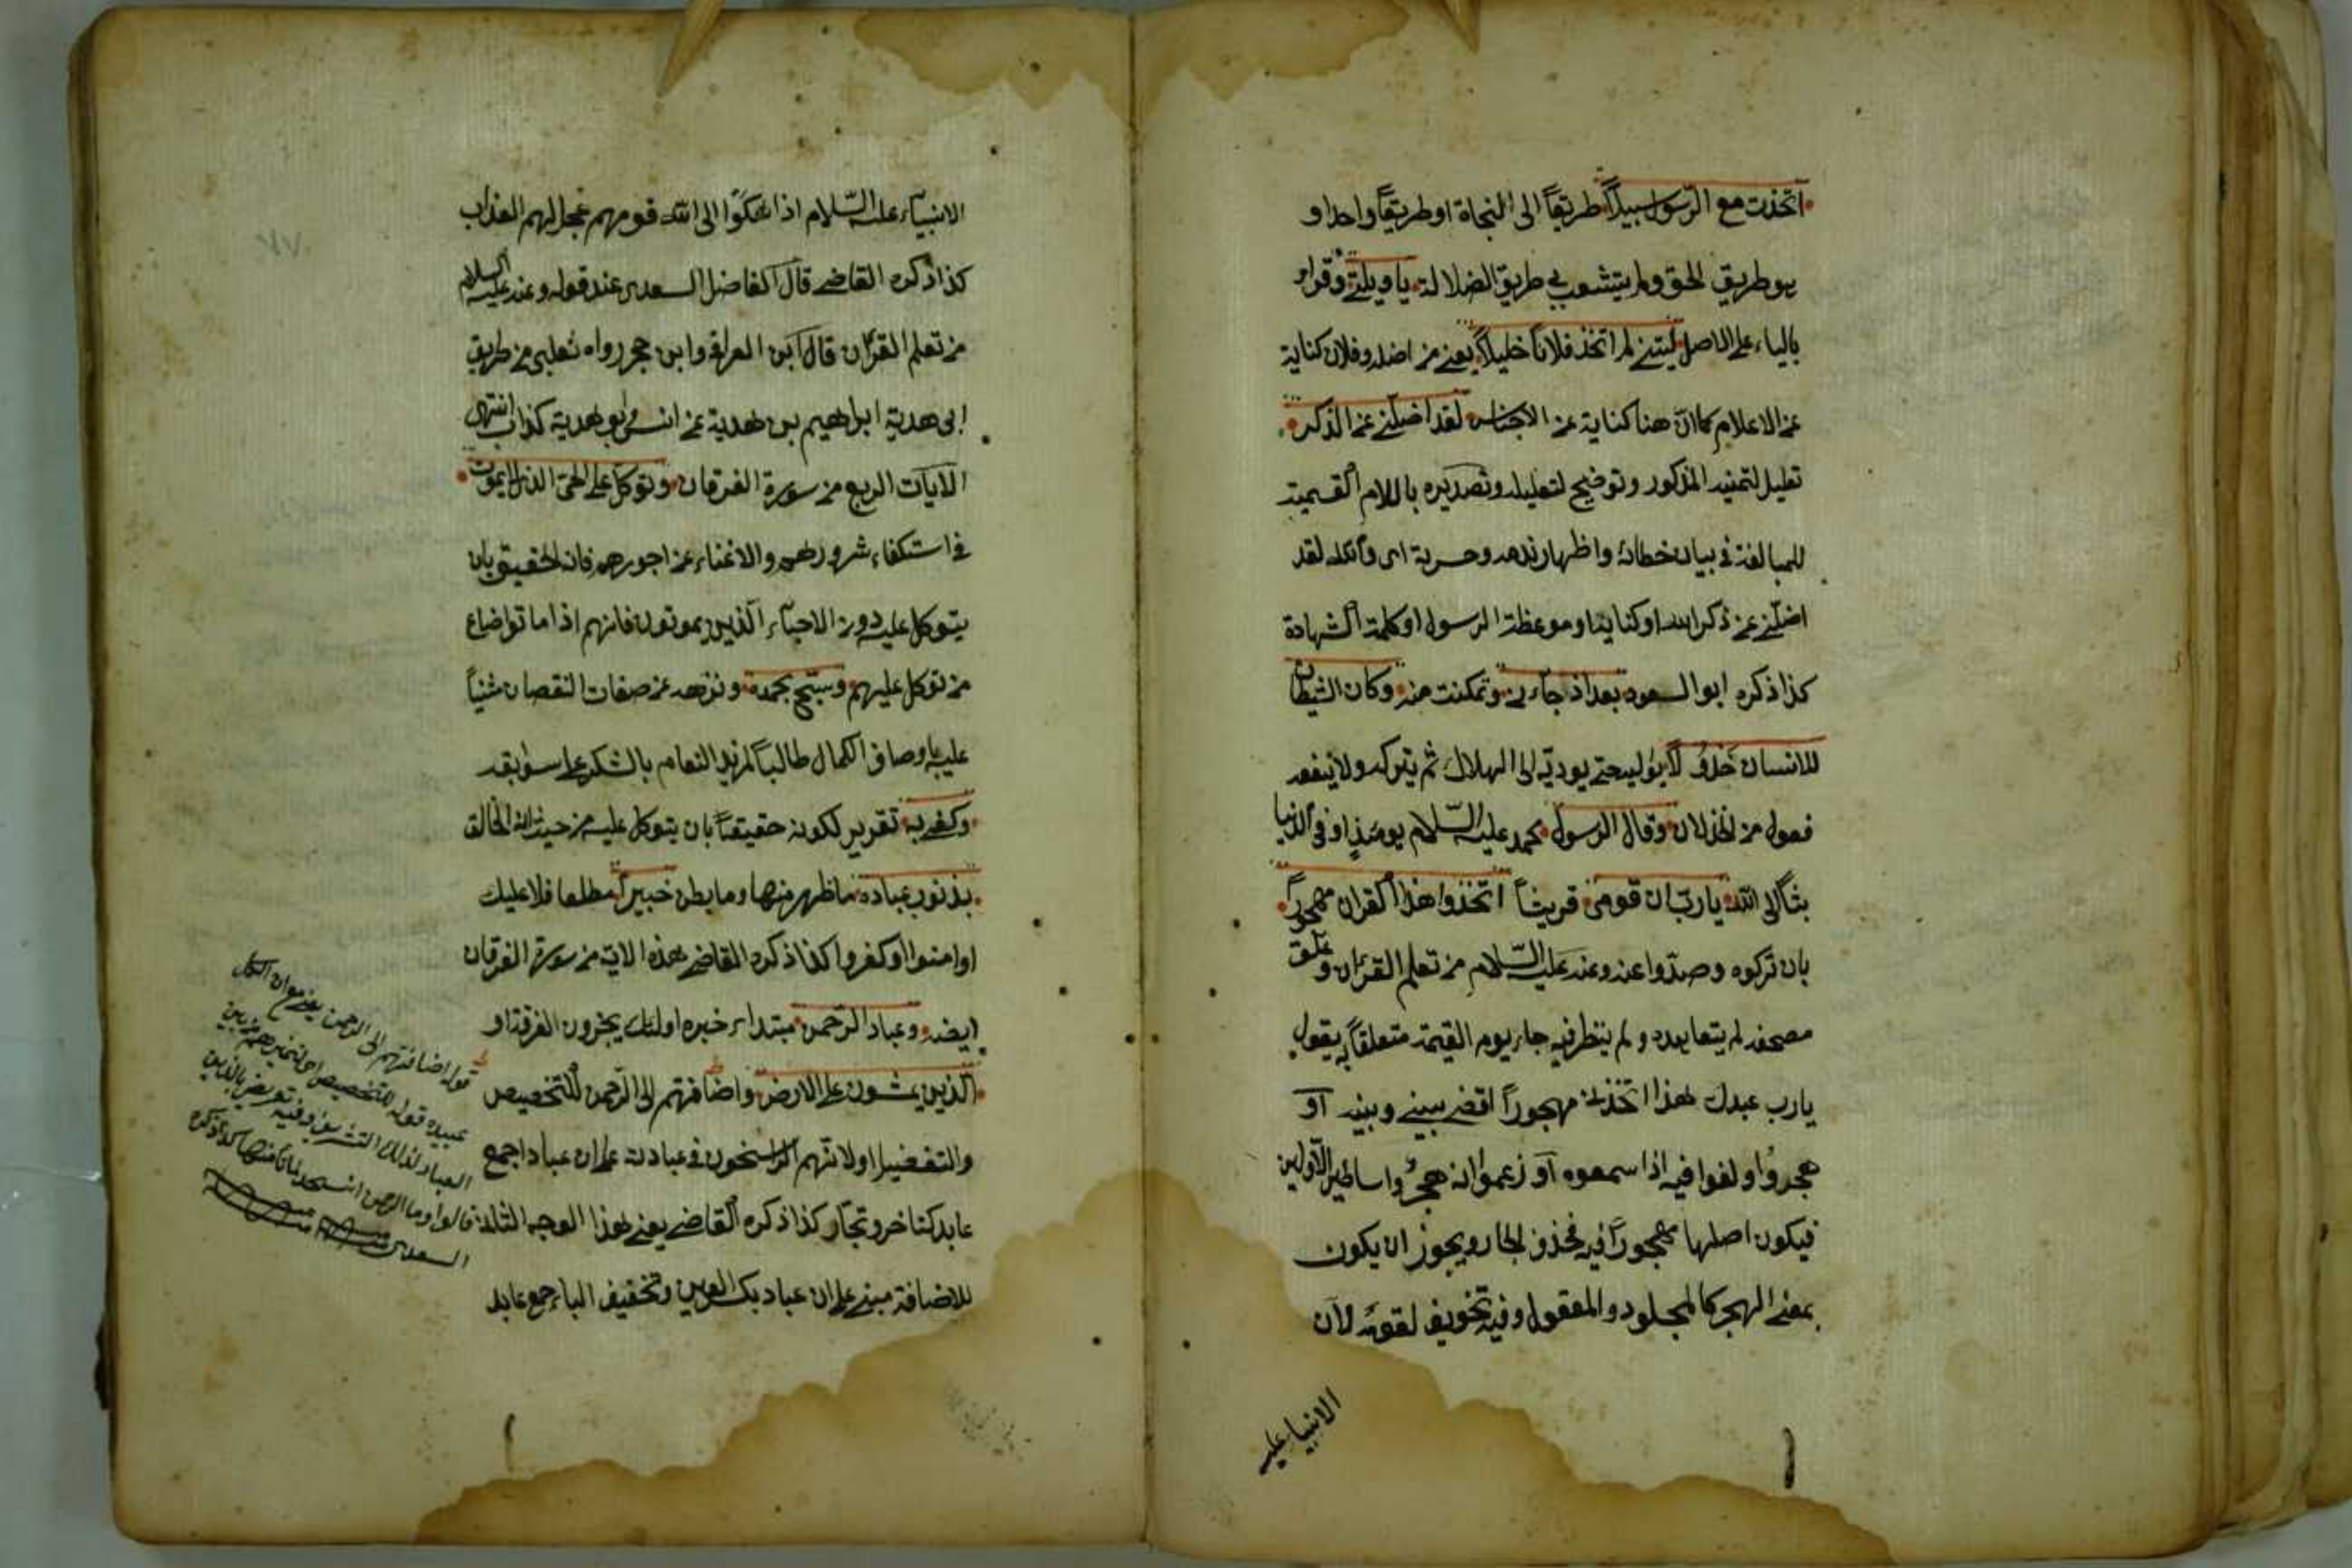 اتخذت مع الرسول سبيلاً طريقاً الى النجاة او طريقاً واحدا و
هو طريق الحق ولم يتشعب بى طريق الضلالة يا ويلتى وقرئ
بالياء على الاصل ليتنى لم اتخذ فلاناً خليلاً يعنى من اضله وفلان كناية
عن الاعلام كما ان هنا كناية عن الاجناس لقد اضلنى عن الذكر
تعليل لتمنيه المذكور وتوضيح لتعليله وتصديره باللام القسمية
للمبالغة فى بيان خطائه واظهار ندمه وحسرته اى والله لقد
اضلنى عن ذكر الله او كتابه او موعظة الرسول او كلمة الشهادة
كذا ذكره ابو السعود بعد اذ جاءنى وتمكنت منه وكان الشيطان
للانسان خذولاً يواليه حتى يوديه الى الهلاك ثم يتركه ولا ينفعه
فعول من الخذلان وقال الرسول محمد عليه السلام يومئذ او فى الدنيا
بثاً الى الله يا رب ان قومى قريشاً اتخذوا هذا القران مهجوراً
بان تركوه وصدوا عنه وعنه عليه السلام من تعلم القران وعلق
مصحفه لم يتعاهده ولم ينظر فيه جاء يوم القيمة متعلقاً به يقول
يا رب عبدك هذا اتخذنى مهجوراً اقض بينى وبينه او
هجروا ولغوا فيه اذا سمعوه او زعموا انه هجر واساطير الاولين
فيكون اصلها مهجوراً فيه فحذف الجار ويجوز ان يكون
بمعنى الهجر كالمجلود والمعقول وفيه تخويف لقومه لان
الانبيا عليه
الانبياء عليه السلام اذا شكوا الى الله قومهم عجل لهم العذاب
كذا ذكره القاضى قال الفاضل السعدى عند قوله وعنه عليه السلام
من تعلم القران قال ابن العراقى وابن حجر رواه ثعلبى من طريق
ابى هدبة ابراهيم بن هدبة عن انس وابو هدبة كذاب انتهى
الايات الربع من سورة الفرقان وتوكل على الحى الذى لا يموت
فى استكفاء شرورهم والاغناء عن اجورهم فانه الحقيق بان
يتوكل عليه دون الاحياء الذين يموتون فانهم اذا ماتوا ضاع
من توكل عليهم وسبح بحمده ونزهه عن صفات النقصان مثنياً
عليه باوصاف الكمال طالباً لمزيد الانعام بالشكر على سوابقه
وكفى به تقرير لكونه حقيقاً بان يتوكل عليه من حيث انه الخالق
بذنوب عباده ما ظهر منها وما بطن خبيراً مطلعا فلا عليك
او امنوا او كفروا كذا ذكره القاضى هذه الاية من سورة الفرقان
ايضا وعباد الرحمن مبتداء خبره اولئك يجزون الغرفة او
الذين يمشون على الارض واضافتهم الى الرحمن للتخصيص
والتفضيل او لانهم الراسخون فى عبادته على ان عباد جمع
عابد كتاجر وتجار كذا ذكره القاضى يعنى هذا الوجه الثالث
للاضافة مبنى على ان عباد بكسر العين وتخفيف الباء جمع عابد
قوله اضافتهم الى الرحمن يعنى مع ان الكل
عبيده قوله للتخصيص اى لتمييزهم من بين
العباد لذلك التشريف وفيه تعريض بالذين
قالوا وما الرحمن انسجد لما تأمرنا كذا ذكره
السعدى